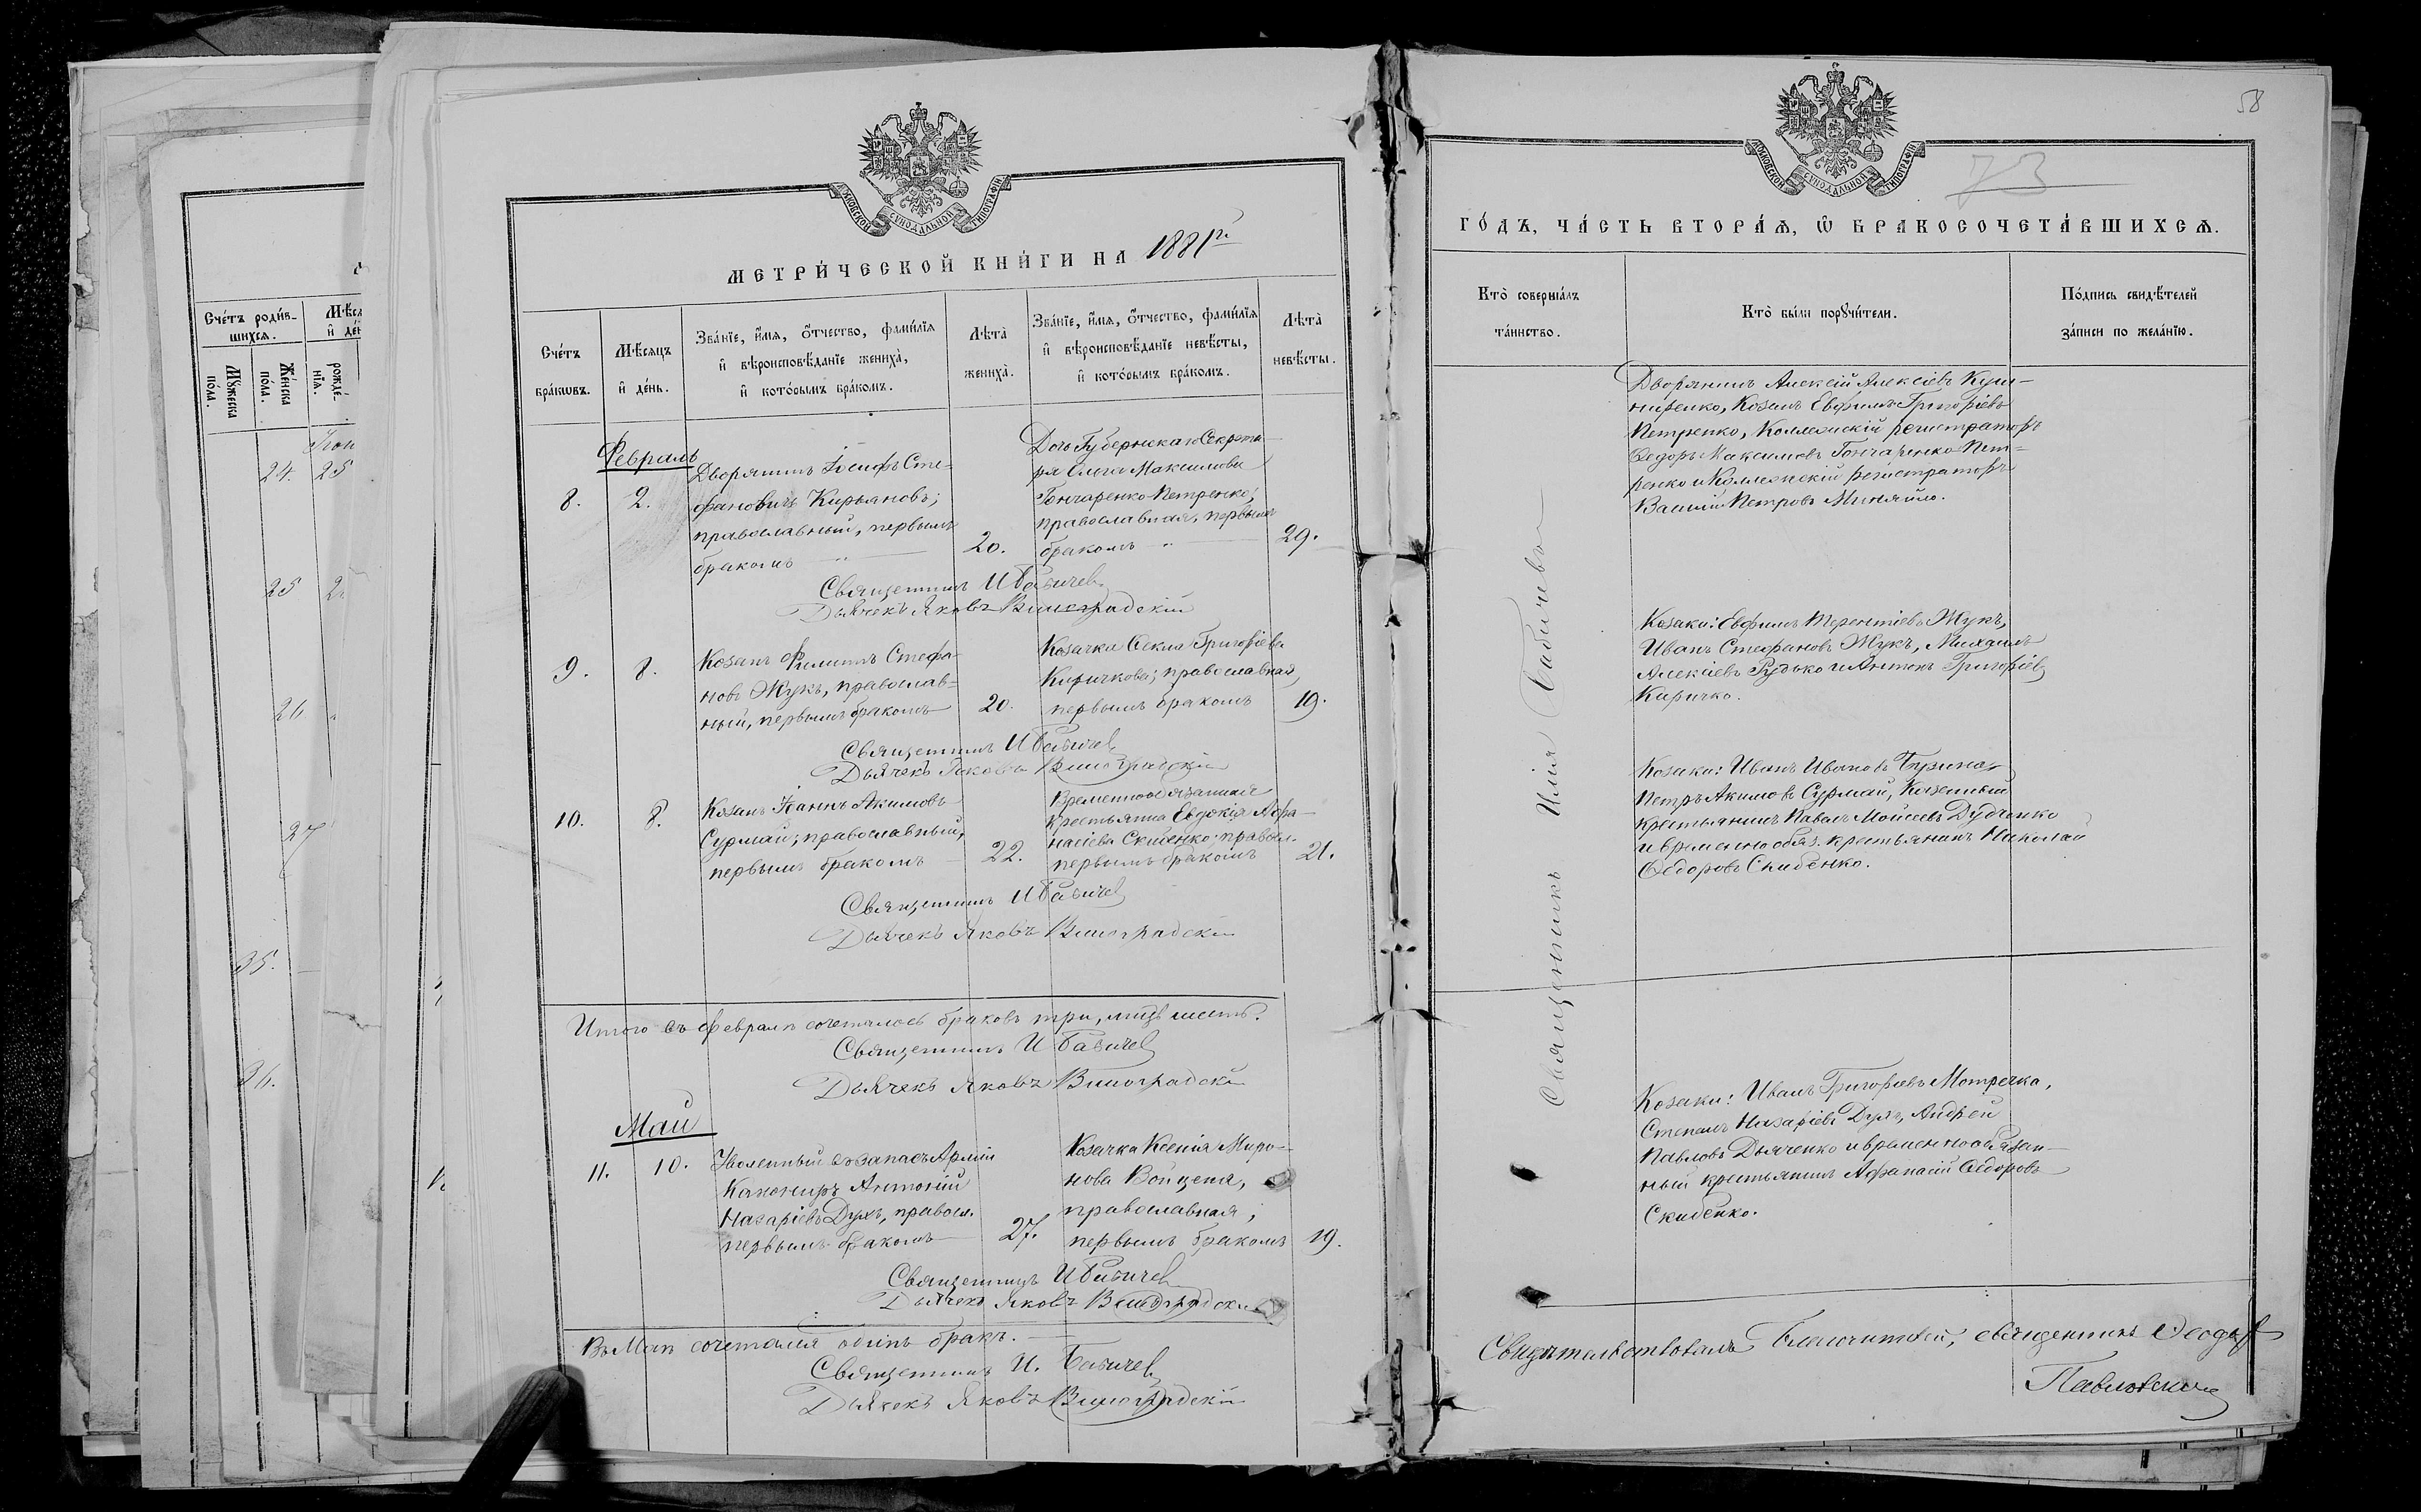 МОСКОВСКОЙ СѴНОДАЛЬНОЙ ТИПОГРАФІИ
МЕТРИ́ЧЕСКОЙ КНИ́ГИ НА 1881й
Сче́тъ бра́ковъ.
Мѣ́сяцъ и де́нь.
Зва́нїе, и́мя, о́тчество, фами́лїя
и вѣроисповѣ́данїе жениха̀,
и кото́рымъ бра́комъ.
Лѣта̀
жениха̀.
Зва́нїе, и́мя, о́тчество, фами́лїя
и вѣроисповѣ́данїе невѣ́сты,
и кото́рымъ бра́комъ.
Лѣта̀
невѣ́сты.
Февраль
8.
2.
Дворянинъ Іосифъ Сте-
фановичъ Кирьяновъ;
православный, первымъ
бракомъ
20.
Дочь Губернскаго Секрета-
ря Елена Максимова
Гончаренко Петренко;
православная, первымъ
бракомъ
29.
Священникъ И Бабичев
Дьячекъ Яковъ Виноградскій
9.
8.
Козакъ Филиппъ Стефа-
новъ Жукъ, православ-
ный, первымъ бракомъ
20.
Козачка Текла Григоріева
Киричкова; православная,
первымъ бракомъ
19.
Священникъ И Бабичев
Дьячекъ Яковъ Виноградскій
10.
8.
Козакъ Іоаннъ Акимовъ
Сурмай; православный,
первымъ бракомъ
22.
Временнообязанная
крестьянка Евдокія Афа-
насіева Скибенко; правосл.
первымъ бракомъ
21.
Священникъ И Бабичев
Дьячекъ Яковъ Виноградскій
Итого въ Февралѣ сочеталось браковъ три, лицъ шесть.
Священникъ И Бабичев
Дьячекъ Яковъ Виноградскій
Май
11.
10.
Уволенный въ запасъ Арміи
Канониръ Антоній
Назаріевъ Духъ, правосл.
первымъ бракомъ
27.
Козачка Ксенія Миро-
нова Войценя,
православная,
первымъ бракомъ
19.
Священникъ И Бабичев
Дьячекъ Яковъ Виноградскій
Въ Маѣ сочетался одинъ бракъ.
Священникъ И. Бабичев
Дьячекъ Яковъ Виноградскій
58
73
МОСКОВСКОЙ СѴНОДАЛЬНОЙ ТИПОГРАФІИ
ГО́ДЪ, ЧА́СТЬ ВТОРА́Я, Ѡ БРАКОСОЧЕТА́ВШИХСЯ.
Кто̀ соверша́лъ
та́инство.
Кто̀ бы́ли порꙋчи́тели.
По́дпись свидѣ́телей
за́писи по жела́нїю.
Священникъ Илія Бабичевъ
Дворянинъ Алексій Алексіевъ Куш-
ниренко, Козакъ Евфимъ Григоріевъ
Петренко, Коллежскій регистраторъ
Ѳедоръ Максимовъ Гончаренко Пет-
ренко и Коллежскій регистраторъ
Василій Петровъ Миняйло.
Козаки: Евфимъ Терентіевъ Жукъ,
Иванъ Стефановъ Жукъ, Михаилъ
Алексіевъ Рудько и Антонъ Григоріев
Киричко.
Козаки: Иванъ Ивановъ
Петръ Акимовъ Сурмай, Казенный
крестьянинъ Павелъ Моисеевъ Дудченко
и временнообяз. крестьянинъ Николай
Ѳедоровъ Скибенко.
Козаки: Иванъ Григоріевъ Мотречко,
Степанъ Назаріевъ Духъ, Андрей
Павловъ Дьяченко и временнообязан-
ный крестьянинъ Афанасій Ѳедоровъ
Скибенко.
Свидѣтельствовалъ Благочинный, священникъ Ѳеодоръ
Павловскій
Сче́тъ роди́в-
шихся.
Мꙋ́жеска
по́ла.
Же́нска
по́ла.
рожде́-
нїя.
24.
25
25
26
27
35.
36.